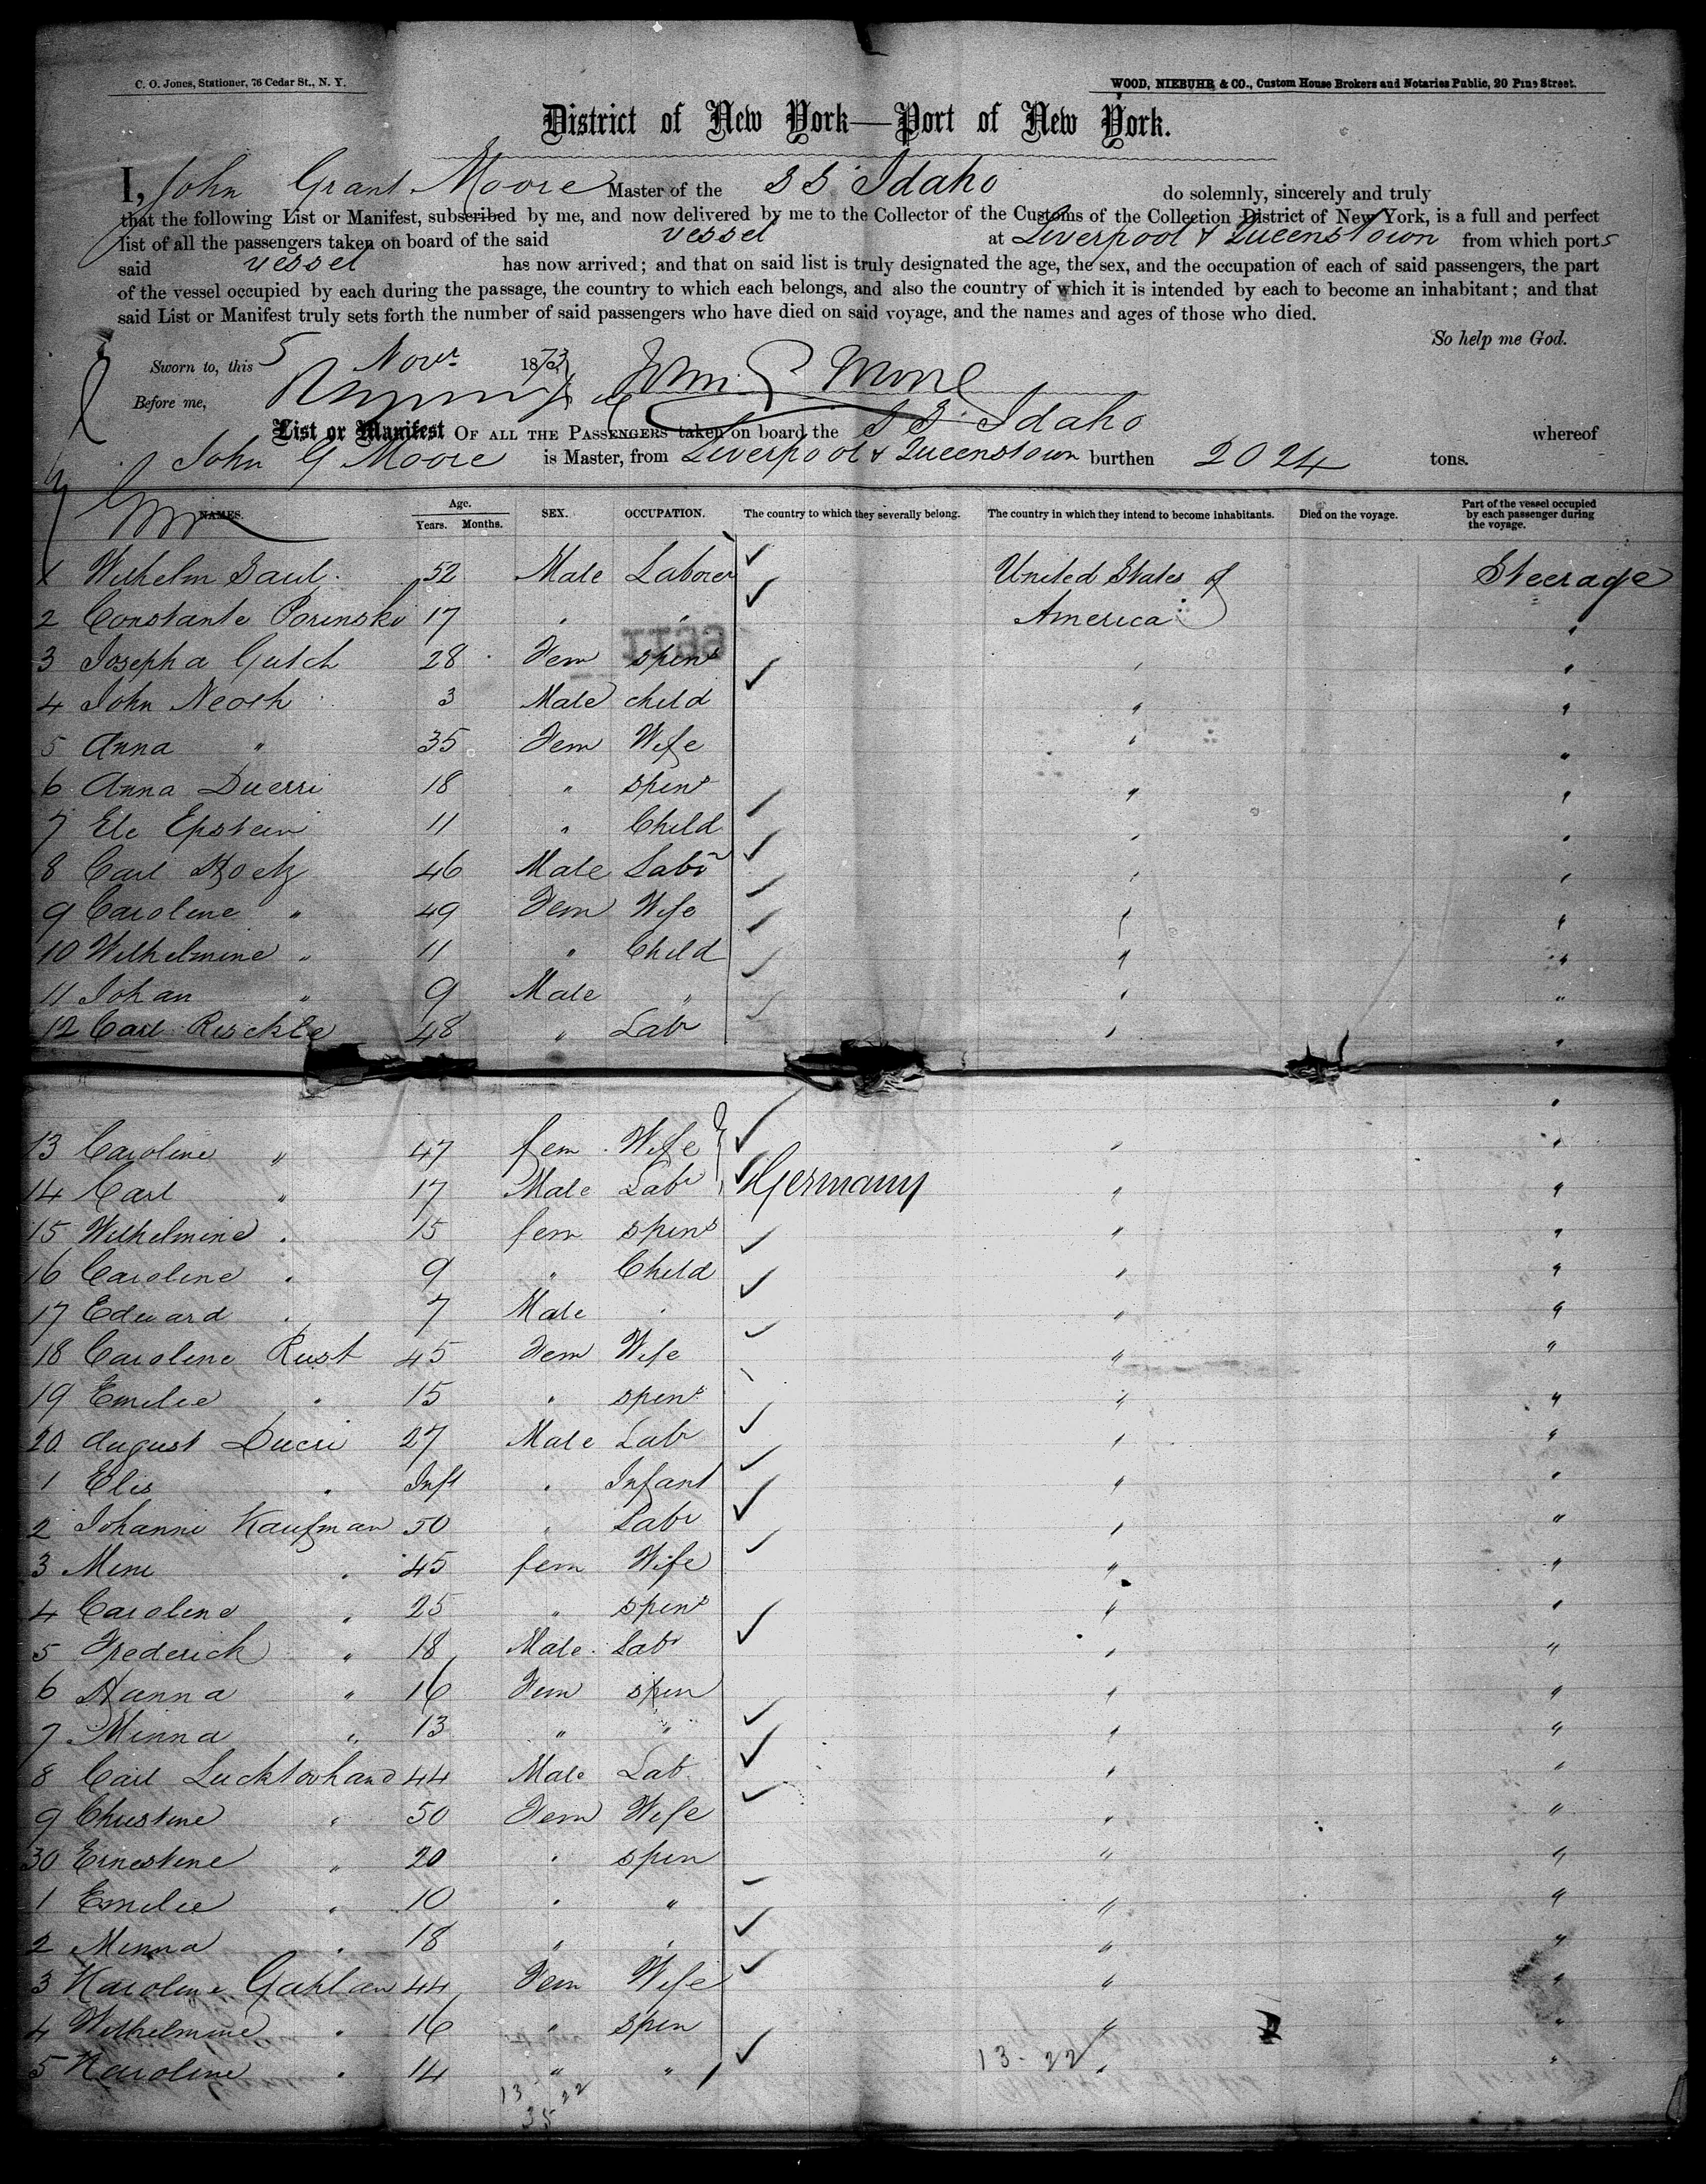 C. O. Jones, Stationer, 76 Cedar St., N. Y.
WOOD, NIEBUHR & CO., Custom House Brokers and Notaries Public, 20 Pine Street.
District of New York—Port of New York.
I, John Grant Moore Master of the SS Idaho do solemnly, sincerely and truly
that the following List or Manifest, subscribed by me, and now delivered by me to the Collector of the Customs of the Collection District of New York, is a full and perfect
list of all the passengers taken on board of the said vessel at Liverpool & Queenstown from which ports
said vessel has now arrived; and that on said list is truly designated the age, the sex, and the occupation of each of said passengers, the part
of the vessel occupied by each during the passage, the country to which each belongs, and also the country of which it is intended by each to become an inhabitant; and that
said List or Manifest truly sets forth the number of said passengers who have died on said voyage, and the names and ages of those who died.
So help me God.
Sworn to, this 5 Novr 1873 John G Moore
Before me,
List or Manifest OF ALL THE PASSENGERS taken on board the SS Idaho whereof
John G Moore is Master, from Liverpool & Queenstown burthen 2024 tons.
NAMES. Age. Years. Months. SEX. OCCUPATION. The country to which they severally belong. The country in which they intend to become inhabitants. Died on the voyage. Part of the vessel occupied by each passenger during the voyage.
1 Wilhelm Saul 52 Male Laborer United States of Steerage
2 Constante Porinski 17 " " America "
3 Josepha Gutch 28 Fem spins " "
4 John Neoth 3 Male child " "
5 Anna " 35 Fem Wife " "
6 Anna Duerri 18 " spins " "
7 Ele Epstein 11 " Child " "
8 Carl 46 Male Labr " "
9 Caroline " 49 Fem Wife " "
10 Wilhelmine " 11 " Child " "
11 Johan " 9 Male " " "
12 Carl Rischkle 48 " Labr " "
13 Caroline " 47 fem Wife " "
14 Carl " 17 Male Labr Germany " "
15 Wilhelmine " 15 fem spins " "
16 Caroline " 9 " Child " "
17 Edward " 7 Male " " "
18 Caroline Rust 45 Fem Wife " "
19 Emilie " 15 " spins " "
20 August Ducri 27 Male Labr " "
1 Elis " Inft " Infant " "
2 Johanni Kaufman 50 " Labr " "
3 Mine " 45 fem Wife " "
4 Caroline " 25 " spins " "
5 Frederick " 18 Male Labr " "
6 Hanna " 16 Fem spin " "
7 Minna " 13 " " " "
8 Carl Lucktohand 44 Male Lab " "
9 Christine " 50 Fem Wife " "
30 Ernestine " 20 " spin " "
1 Emilie " 10 " " " "
2 Minna " 18 " " " "
3 Karoline Gahlan 44 Fem Wife " "
4 Wilhelmine " 16 " spin " "
5 Karoline " 14 " " " "
13 22 13-22
35